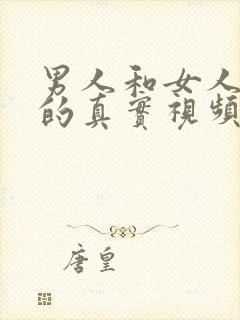 男人和女人
的真實視頻
唐皇